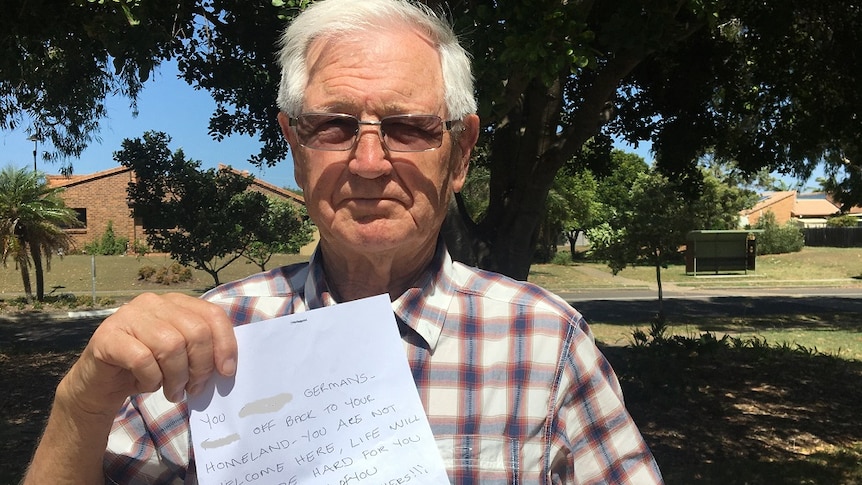 YOU GERMANS-
OFF BACK TO YOUR
HOMELAND. YOU ARE NOT
WELCOME HERE, LIFE WILL
BE HARD FOR YOU
OF YOU
!!!